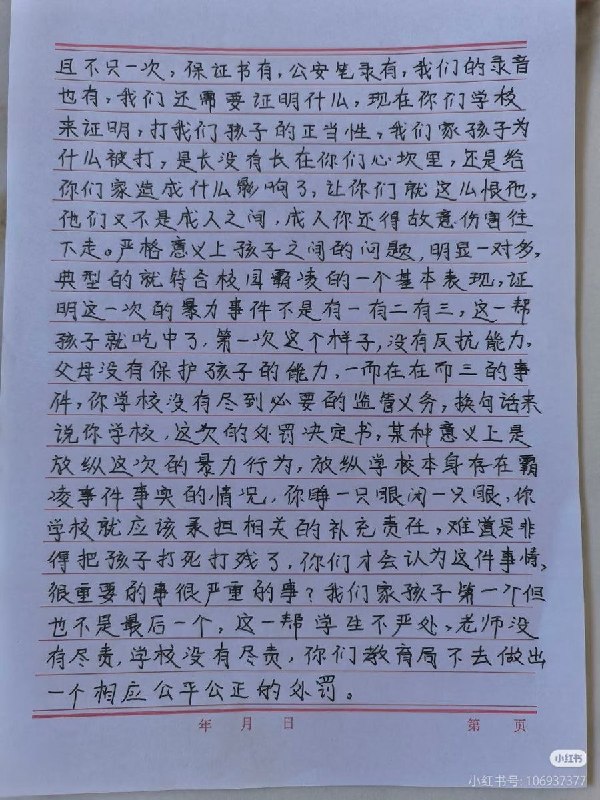 且不只一次，保证书有，公安笔录有，我们的录音
也有，我们还需要证明什么，现在你们学校
来证明，打我们孩子的正当性，我们家孩子为
什么被打，是长没有长在你们心坎里，还是给
你们家造成什么影响了，让你们就这么恨他，
他们又不是成人之间，成人你还得故意伤害往
下走。严格意义上孩子之间的问题，明显一对多，
典型的就符合校园霸凌的一个基本表现，证
明这一次的暴力事件不是有一有二有三，这一帮
孩子就吃中了，第一次这个样子，没有反抗能力，
父母没有保护孩子的能力，一而在在而三的事
件，你学校没有尽到必要的监管义务，换句话来
说你学校，这次的处罚决定书，某种意义上是
放纵这次的暴力行为，放纵学校本身存在霸
凌事件事实的情况，你睁一只眼闭一只眼，你
学校就应该承担相关的补充责任，难道是非
得把孩子打死打残了，你们才会认为这件事情，
很重要的事很严重的事？我们家孩子第一个但
也不是最后一个，这一帮学生不严处，老师没
有尽责，学校没有尽责，你们教育局不去做出
一个相应公平公正的处罚。
年 月 日 第 页
小红书
小红书号：106937377